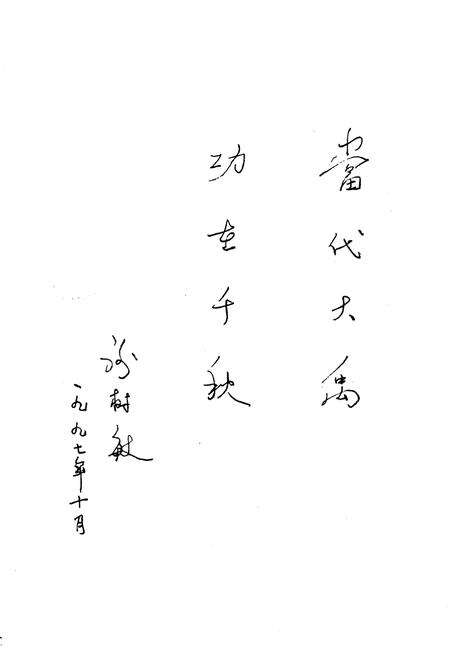 當代大禹
功在千秋
谢树敏
一九九七年十月